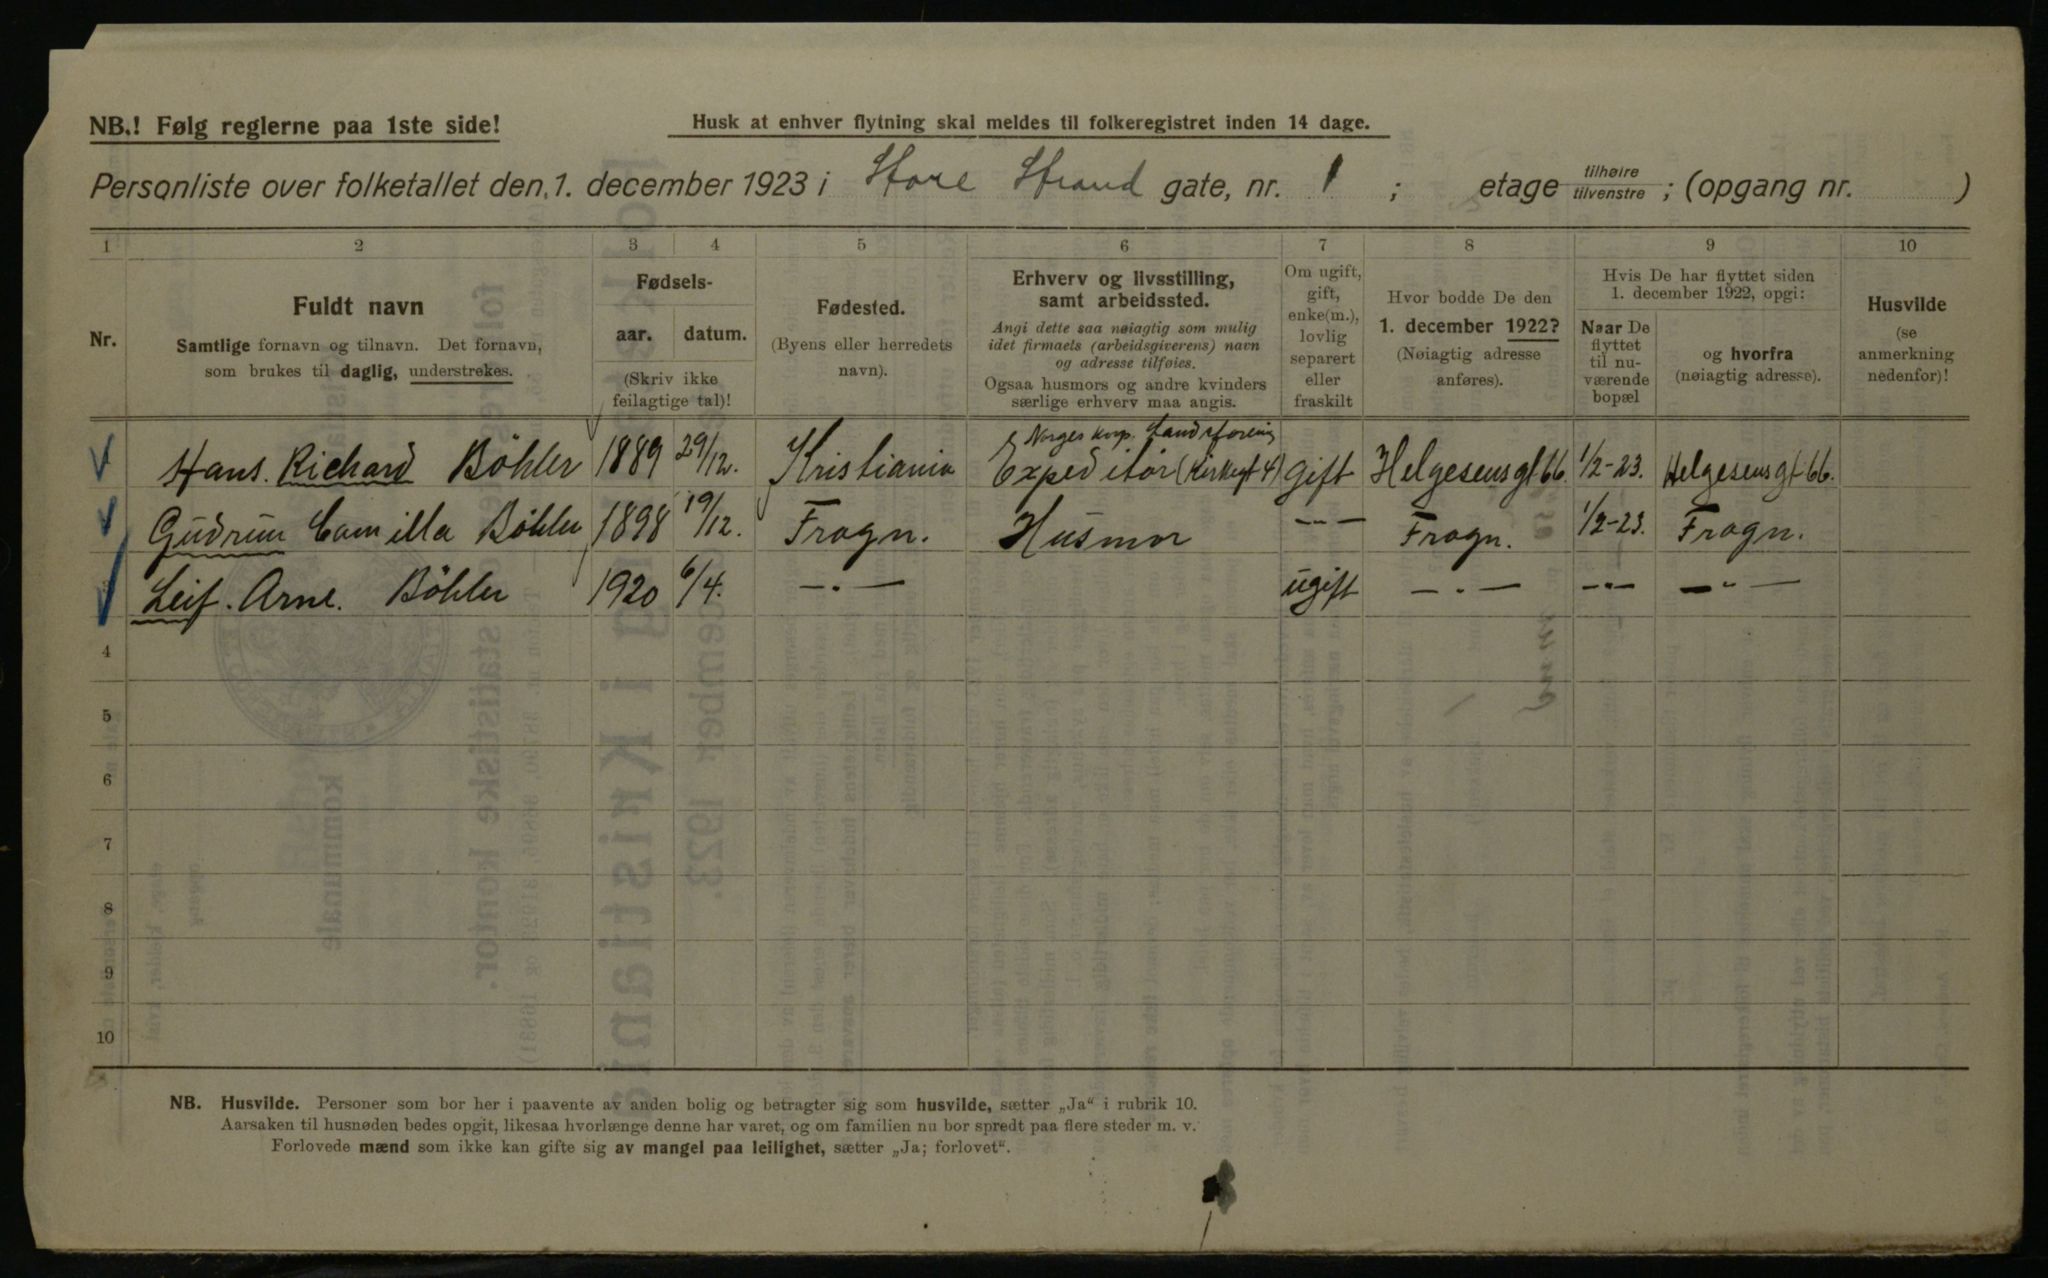 NB.! Følg reglerne paa 1ste side!
Husk at enhver flytning skal meldes til folkeregistret inden 14 dage.
Personliste over folketallet den 1. december 1923 i Store Strand gate, nr. 1 ; etage tilhøire tilvenstre ; (opgang nr. )
1 2 3 4 5 6 7 8 9 10
Nr.
Fuldt navn
Samtlige fornavn og tilnavn. Det fornavn,
som brukes til daglig, understrekes.
Fødsels-
aar. datum.
(Skriv ikke
feilagtige tal)!
Fødested.
(Byens eller herredets
navn).
Erhverv og livsstilling,
samt arbeidssted.
Angi dette saa nøiagtig som mulig
idet firmaets (arbeidsgiverens) navn
og adresse tilføies.
Ogsaa husmors og andre kvinders
særlige erhverv maa angis.
Om ugift,
gift,
enke(m.),
lovlig
separert
eller
fraskilt
Hvor bodde De den
1. december 1922?
(Nøiagtig adresse
anføres).
Hvis De har flyttet siden
1. december 1922, opgi:
Naar De
flyttet
til nu-
værende
bopæl
og hvorfra
(nøiagtig adresse).
Husvilde
(se
anmerkning
nedenfor)!
Norges Kop. Landsforening
Hans. Richard Böhler 1889 29/12. Kristiania Expeditör (Kirkegt 4) gift Helgesens gt 66. 1/2-23. Helgesens gt 66.
Gudrun Camilla Böhler 1898 19/12. Frogn. Husmor -"- Frogn. 1/2-23. Frogn.
Leif. Arne. Böhler 1920 6/4. -"- ugift -"- -"- -"-
4
5
6
7
8
9
10
NB. Husvilde. Personer som bor her i paavente av anden bolig og betragter sig som husvilde, sætter „Ja“ i rubrik 10.
Aarsaken til husnøden bedes opgit, likesaa hvorlænge denne har varet, og om familien nu bor spredt paa flere steder m. v.
Forlovede mænd som ikke kan gifte sig av mangel paa leilighet, sætter „Ja; forlovet“.